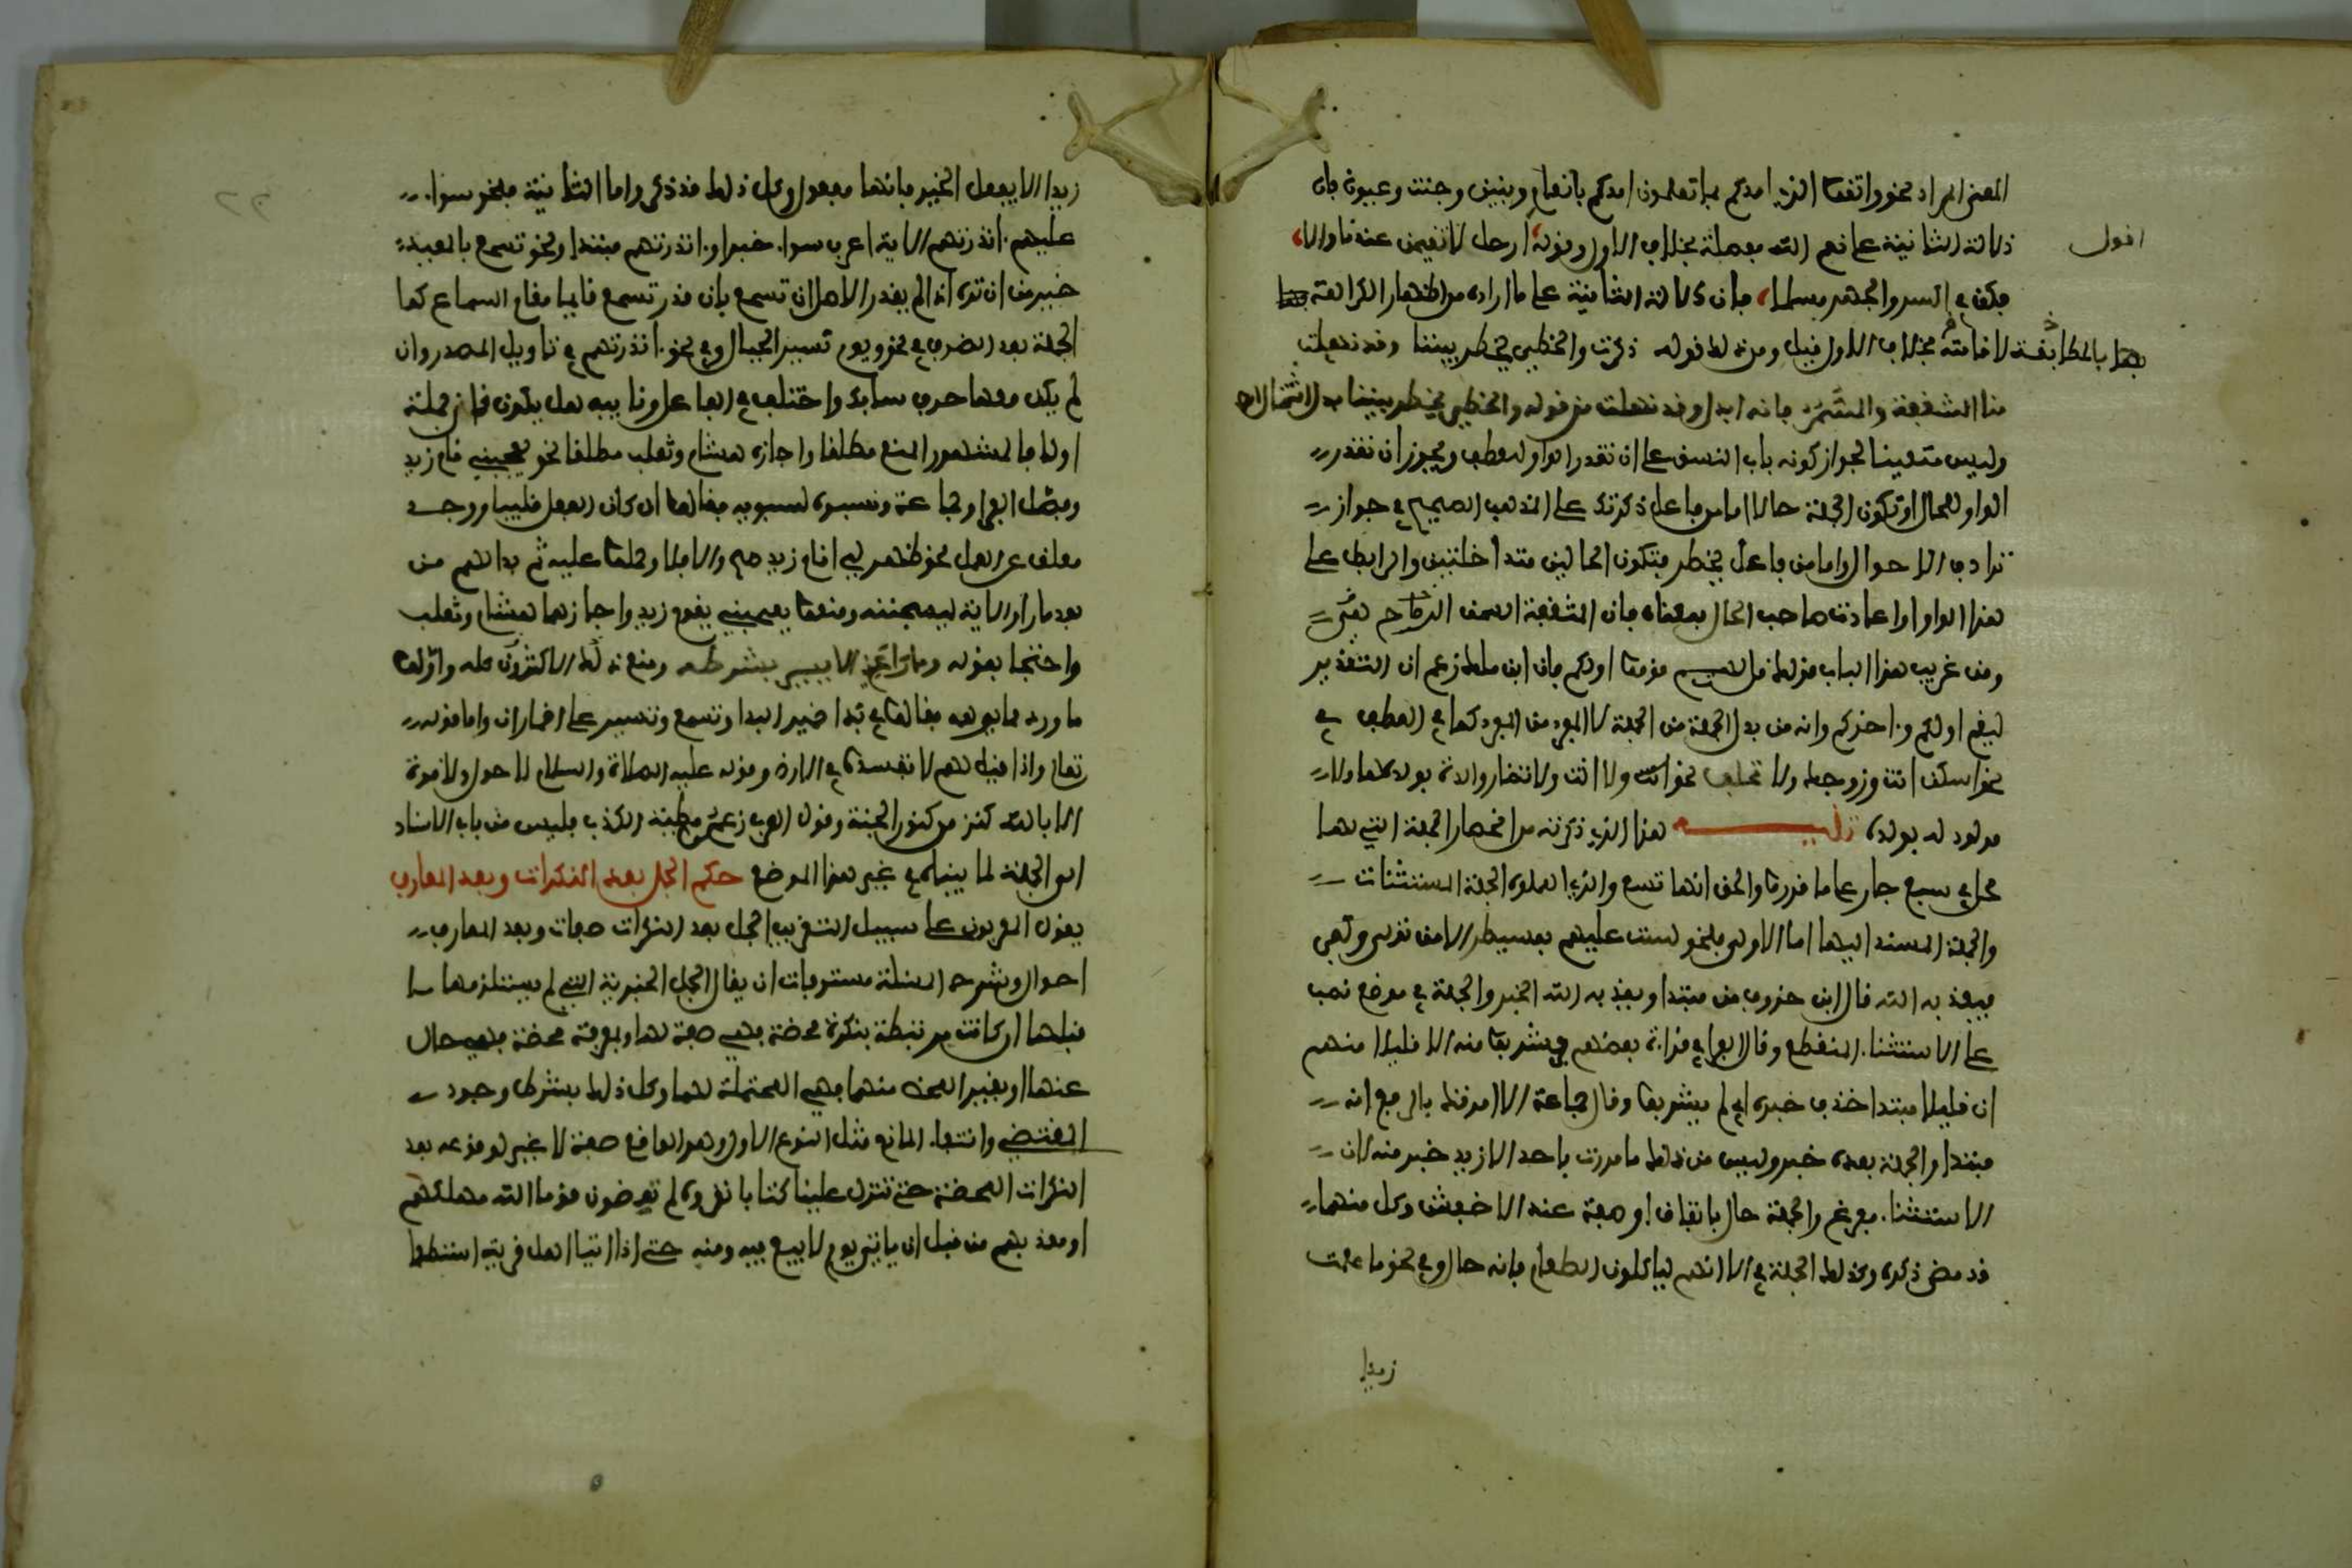 المعنى المراد نحو واتقوا الذي امدكم بما تعلمون امدكم بانعام وبنين وجنت وعيون فان
دلالة الثانية على نعم الله مفصلة بخلاف الاولى وقوله ارحل لا تقيمن عندنا والا
اقول
فكن في السر والجهر مسلما فان دلالة الثانية على ما اراده من اظهار الكراهة
بالمطابقة لاقامته بخلاف الاولى قيل ومن ذلك قوله ذكرتك والخطي يخطر بيننا وقد نهلت
منا المثقفة والسمر فانه ابدل وقد نهلت من قوله والخطي يخطر بيننا بدل اشتمال اه
وليس متعينا لجواز كونه باب النسق على ان تقدر الواو للعطف ويجوز ان تقدر
الواو للحال وتكون الجملة حالا اما من فاعل ذكرتك على المذهب الصحيح في جواز
ترادف الاحوال واما من فاعل يخطر فتكون الحالين متداخلتين والرابط على
هذا الواو او اعادت صاحب الحال بمعناه فان المثقفة السمر الرماح هي
ومن غريب هذا الباب قولك قل لهم قوموا اولكم فان ابن ملك زعم ان التقدير
ليقم اولكم واخركم وانه من بدل الجملة من الجملة لا المفرد من المفرد كما في العطف في
نحو اسكن انت وزوجك ولا تخلف نحن ولا انت ولا تضار والدة بولدها ولا
مولود له بولده تنبيه هذا الذي ذكرته من انحصار الجمل التي لها
محل في سبع جار على ما قرروا والحق انها تسع والذي اهملوه الجملة المستثنات
والجملة المسند اليها اما الاولى فنحو لست عليهم بمسيطر الا من تولى وكفر
فيعذبه الله قال ابن خروف من مبتدا ويعذبه الله الخبر والجملة في موضع نصب
على الاستثناء المنقطع وقال الفراء في قراءة بعضهم فشربوا منه الا قليل منهم
ان قليل مبتدا حذف خبره اي لم يشربوا وقال جماعة الا امراتك بالرفع انه
مبتدا والجملة بعده خبر وليس من ذلك ما مررت باحد الا زيد خير منه لان
الاستثناء مفرغ والجملة حال باتفاق او صفة عند الاخفش وكل منهما
قد مضى ذكره وكذلك الجملة في الا انهم لياكلون الطعام فانه حال وفي نحو ما علمت
زيدا
زيدا الا يفعل الخير فانها مفعول وكل ذلك قد ذكر واما الثانية فنحو سواء
عليهم ءانذرتهم الاية اعرب سواء خبرا وءانذرتهم مبتدا ونحو تسمع بالمعيدي
خير من ان تراه اذا لم يقدر الاصل ان تسمع بل قدر تسمع قائما مقام السماع كما
الجملة بعد الظرف في نحو ويوم تسير الجبال وفي نحو ءانذرتهم في تاويل المصدر وان
لم يكن معها حرف سابك واختلف في الفاعل ونايبه هل يكون فان جملة
او لا فالمشهور المنع مطلقا واجازه هشام وثعلب مطلقا نحو يعجبني قام زيد
وفصل الفراء وجماعة ونسبوه لسيبويه فقالوا ان كان الفعل قلبيا ووجد
معلق عن العمل نحو ظهر لي اقام زيد صح والا فلا وحملوا عليه ثم بدا لهم من
بعد ما راوا الاية ليسجننه ومنعوا يعجبني يقوم زيد واجازهما هشام وثعلب
واحتجا بقوله وما راعني الا يسير بشرطه ومنع ذلك الاكثرون كله واولوا
ما ورد مما يوهمه فقالوا في بدا ضمير البداء وتسمع وتسير على اضمار ان واما قوله
تعالى واذا قيل لهم لا تفسدوا في الارض وقوله عليه الصلاة والسلام لا حول ولا قوة
الا بالله كنز من كنوز الجنة وقول العرب زعموا مطية الكذب فليس من باب الاسناد
الى الجملة لما بيناه في غير هذا الموضع حكم الجمل بعد النكرات وبعد المعارف
يقول المعربون على سبيل التقريب الجمل بعد النكرات صفات وبعد المعارف
احوال وشرح المسئلة مستوفات ان يقال الجمل الخبرية التي لم يستلزمها ما
قبلها ان كانت مرتبطة بنكرة محضة فهي صفة لها او بمعرفة محضة فهي حال
عنها او بغير المحض منهما فهي المحتملة لهما وكل ذلك بشرط وجود
المقتضي وانتفاء المانع مثل النوع الاول وهو الواقع صفة لا غير لوقوعه بعد
النكرات المحضة حتى تنزل علينا كتابا نقرؤه لم تعظون قوما الله مهلكهم
او معذبهم من قبل ان ياتي يوم لا بيع فيه ومنه حتى اذا اتيا اهل قرية استطعما